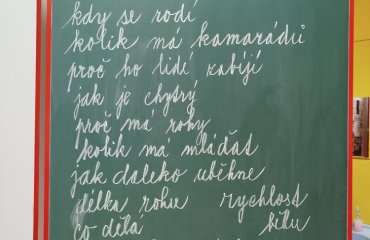 kdy se rodí
kolik má kamarádů
proč ho lidí zabíjí
jak je chytrý
proč má rohy
kolik má mláďat
jak daleko uběhne
délka rohu rychlost
co dělá běhu